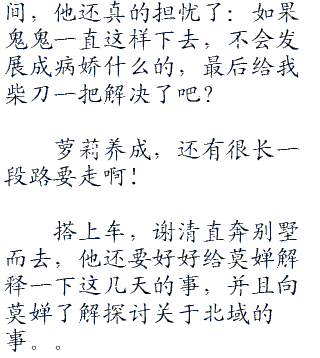 间，他还真的担忧了：如果
鬼鬼一直这样下去，不会发
展成病娇什么的，最后给我
柴刀一把解决了吧？
萝莉养成，还有很长一
段路要走啊！
搭上车，谢清直奔别墅
而去，他还要好好给莫婵解
释一下这几天的事，并且向
莫婵了解探讨关于北域的
事。。